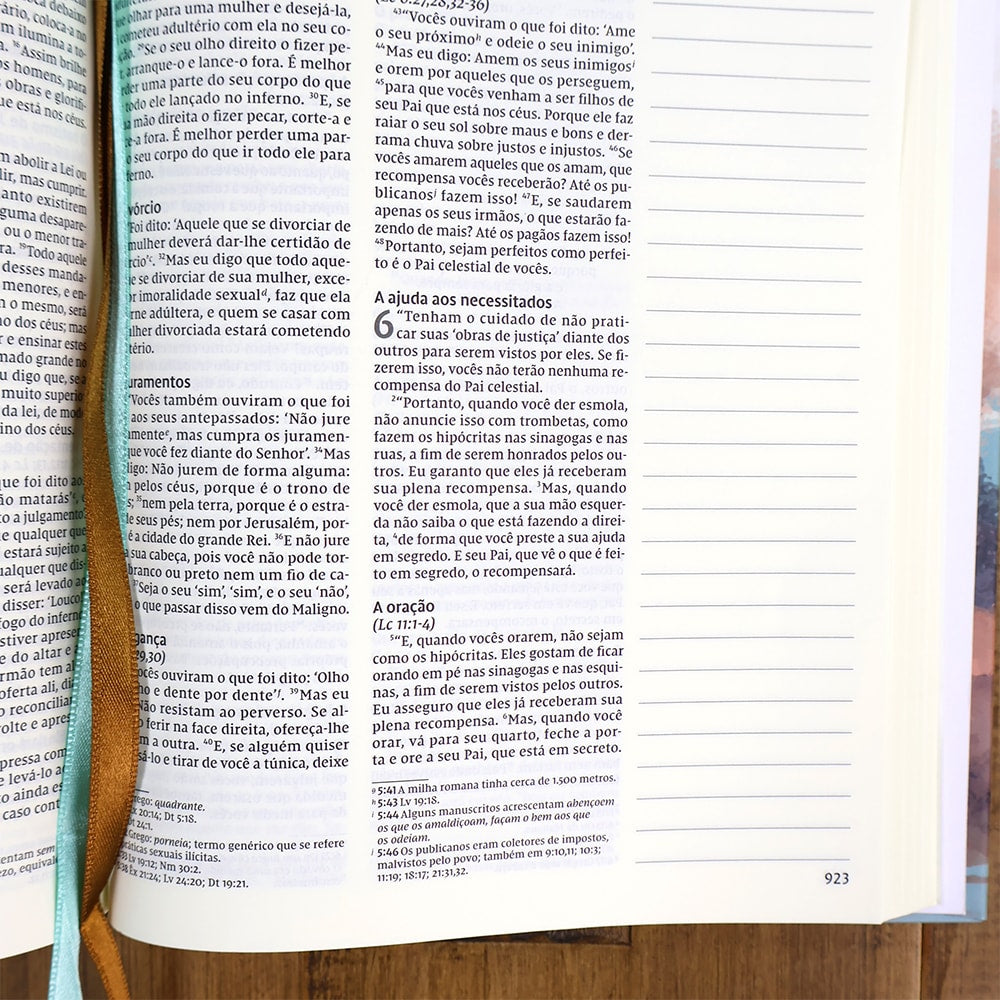 debaixo
rário, coloca-a no
ilumina a to-
¹⁶Assim brilhe
os homens, para
obras e glorifi-
ue está nos céus.
m abolir a Lei ou
lir, mas cumprir.
anto existirem
guma desapare-
ou o menor tra-
ra. ¹⁹Todo aquele
desses manda-
menores, e en-
o mesmo, será
no dos céus; mas
r e ensinar estes
mado grande no
u digo que, se a
muito superior
da lei, de modo
ino dos céus.
que foi dito aos
ão matarás’
to a julgamento
e qualquer que
estará sujeito a
ualquer que dis-
será levado ao
disser: ‘Louco!
fogo do inferno
stiver apresen
e do altar e
rmão tem al
oferta ali, di
o reconciliar
volte e apres
pressa com
e levá-lo ao
to ainda es
caso cont
entam sem
zo, equival
olhar para uma mulher e desejá-la,
cometeu adultério com ela no seu co-
²⁹Se o seu olho direito o fizer pe-
arranque-o e lance-o fora. É melhor
der uma parte do seu corpo do que
todo ele lançado no inferno. ³⁰E, se
a mão direita o fizer pecar, corte-a e
ce-a fora. É melhor perder uma par-
o seu corpo do que ir todo ele para
ferno.
vórcio
Foi dito: ‘Aquele que se divorciar de
mulher deverá dar-lhe certidão de
rcio’ᶜ. ³²Mas eu digo que todo aque-
e se divorciar de sua mulher, exce-
r imoralidade sexualᵈ, faz que ela
rne adúltera, e quem se casar com
lher divorciada estará cometendo
tério.
uramentos
Vocês também ouviram o que foi
aos seus antepassados: ‘Não jure
amenteᵉ, mas cumpra os juramen-
que você fez diante do Senhor’. ³⁴Mas
digo: Não jurem de forma alguma:
pelos céus, porque é o trono de
s; ³⁵nem pela terra, porque é o estra-
de seus pés; nem por Jerusalém, por-
é a cidade do grande Rei. ³⁶E não jure
sua cabeça, pois você não pode tor-
branco ou preto nem um fio de ca-
³⁷Seja o seu ‘sim’, ‘sim’, e o seu ‘não’,
o que passar disso vem do Maligno.
gança
29,30)
ocês ouviram o que foi dito: ‘Olho
o e dente por dente’ᶠ. ³⁹Mas eu
Não resistam ao perverso. Se al-
ferir na face direita, ofereça-lhe
m a outra. ⁴⁰E, se alguém quiser
sá-lo e tirar de você a túnica, deixe
rego: quadrante.
Êx 20:14; Dt 5:18.
24:1.
Grego: porneia; termo genérico que se refere
ráticas sexuais ilícitas.
33 Lv 19:12; Nm 30:2.
38 Êx 21:24; Lv 24:20; Dt 19:21.
(Lc 6:27,28,32-36)
⁴³“Vocês ouviram o que foi dito: ‘Ame
o seu próximoʰ e odeie o seu inimigo’.
⁴⁴Mas eu digo: Amem os seus inimigosⁱ
e orem por aqueles que os perseguem,
⁴⁵para que vocês venham a ser filhos de
seu Pai que está nos céus. Porque ele faz
raiar o seu sol sobre maus e bons e der-
rama chuva sobre justos e injustos. ⁴⁶Se
vocês amarem aqueles que os amam, que
recompensa vocês receberão? Até os pu-
blicanosʲ fazem isso! ⁴⁷E, se saudarem
apenas os seus irmãos, o que estarão fa-
zendo de mais? Até os pagãos fazem isso!
⁴⁸Portanto, sejam perfeitos como perfei-
to é o Pai celestial de vocês.
A ajuda aos necessitados
6 “Tenham o cuidado de não prati-
car suas ‘obras de justiça’ diante dos
outros para serem vistos por eles. Se fi-
zerem isso, vocês não terão nenhuma re-
compensa do Pai celestial.
²“Portanto, quando você der esmola,
não anuncie isso com trombetas, como
fazem os hipócritas nas sinagogas e nas
ruas, a fim de serem honrados pelos ou-
tros. Eu garanto que eles já receberam
sua plena recompensa. ³Mas, quando
você der esmola, que a sua mão esquer-
da não saiba o que está fazendo a direi-
ta, ⁴de forma que você preste a sua ajuda
em segredo. E seu Pai, que vê o que é fei-
to em segredo, o recompensará.
A oração
(Lc 11:1-4)
⁵“E, quando vocês orarem, não sejam
como os hipócritas. Eles gostam de ficar
orando em pé nas sinagogas e nas esqui-
nas, a fim de serem vistos pelos outros.
Eu asseguro que eles já receberam sua
plena recompensa. ⁶Mas, quando você
orar, vá para seu quarto, feche a por-
ta e ore a seu Pai, que está em secreto.
g 5:41 A milha romana tinha cerca de 1.500 metros.
h 5:43 Lv 19:18.
i 5:44 Alguns manuscritos acrescentam abençoem
os que os amaldiçoam, façam o bem aos que
os odeiam.
j 5:46 Os publicanos eram coletores de impostos,
malvistos pelo povo; também em 9:10,11; 10:3;
11:19; 18:17; 21:31,32.
923